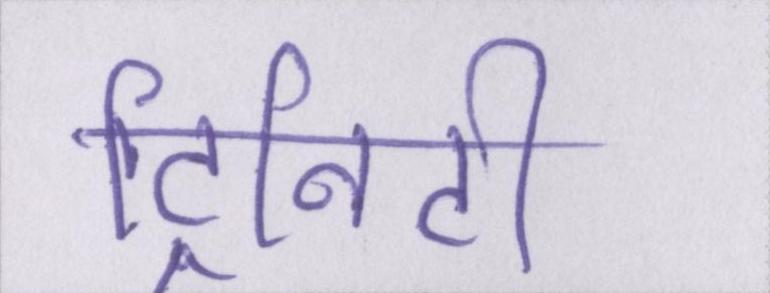 ट्रिनिटी